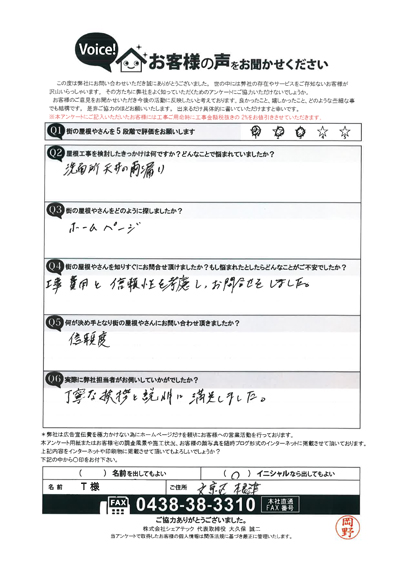 Voice!
お客様の声をお聞かせください
この度は弊社にお問い合わせいただき誠にありがとうございました。世の中には弊社の存在やサービスをご存知ないお客様が
沢山いらっしゃいます。その方たちに弊社をよく知っていただくためのアンケートにご協力いただけないでしょうか。
お客様のご意見をお聞かせいただき今後の活動に反映したいと考えております。良かったこと、嬉しかったこと、どのような些細な事
でも結構です。是非ご協力のほどお願いします。出来るだけ具体的に書いていただけますと幸いです。
※本アンケートにご記入いただいたお客様には工事ご用命時に工事金額税抜きの2%をお値引きさせていただきます。
Q1 街の屋根やさんを5段階で評価をお願いします
☆ ☆ ☆ ☆ ☆
Q2 屋根工事を検討したきっかけは何ですか?どんなことで悩まれていましたか?
洗面所天井の雨漏り
Q3 街の屋根やさんをどのように探しましたか?
ホームページ
Q4 街の屋根やさんを知りすぐにお問合せ頂けましたか?もし悩まれたとしたらどんなことがご不安でしたか?
工事費用と信頼性を考慮し、お問合せをしました。
Q5 何が決め手となり街の屋根やさんにお問い合わせ頂きましたか?
信頼度
Q6 実際に弊社担当者がお伺いしていかがでしたか?
丁寧な挨拶と説明に満足しました。
*弊社は広告宣伝費を極力かけない為にホームページだけを頼りにお客様への営業活動を行っております。
本アンケート用紙またはお客様宅の調査風景や施工状況、お客様の顔写真を随時ブログ形式のインターネットに掲載させて頂いております。
上記内容をインターネットや印刷物に掲載させて頂いてもよろしいでしょうか?
下記の中から〇印をお付け下さい。
( )名前を出してもよい ( 〇 )イニシャルなら出してもよい
名前 T様 ご住所 文京区根津
FAX 0438-38-3310 本社直通 FAX番号
ご協力ありがとうございました。
株式会社シェアテック 代表取締役 大久保 誠二
当アンケートで取得したお客様の個人情報は関係法規に基づき厳正に管理いたします。
岡野